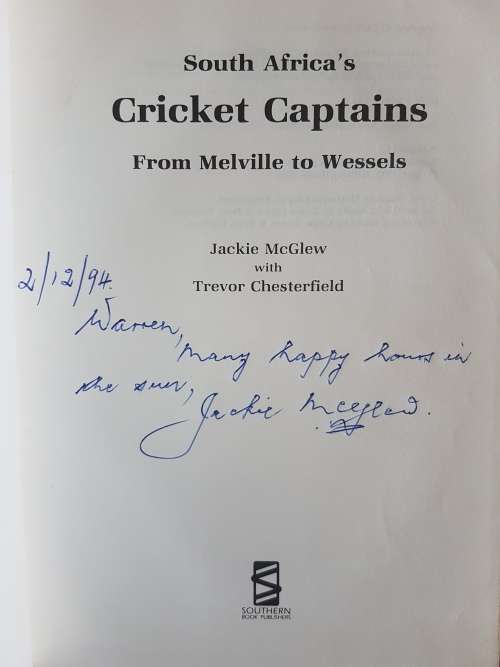 South Africa's
Cricket Captains
From Melville to Wessels
Jackie McGlew
with
Trevor Chesterfield
2/12/94.
Warren,
many happy hours in
the sun,
Jackie McGlew.
SOUTHERN
BOOK PUBLISHERS